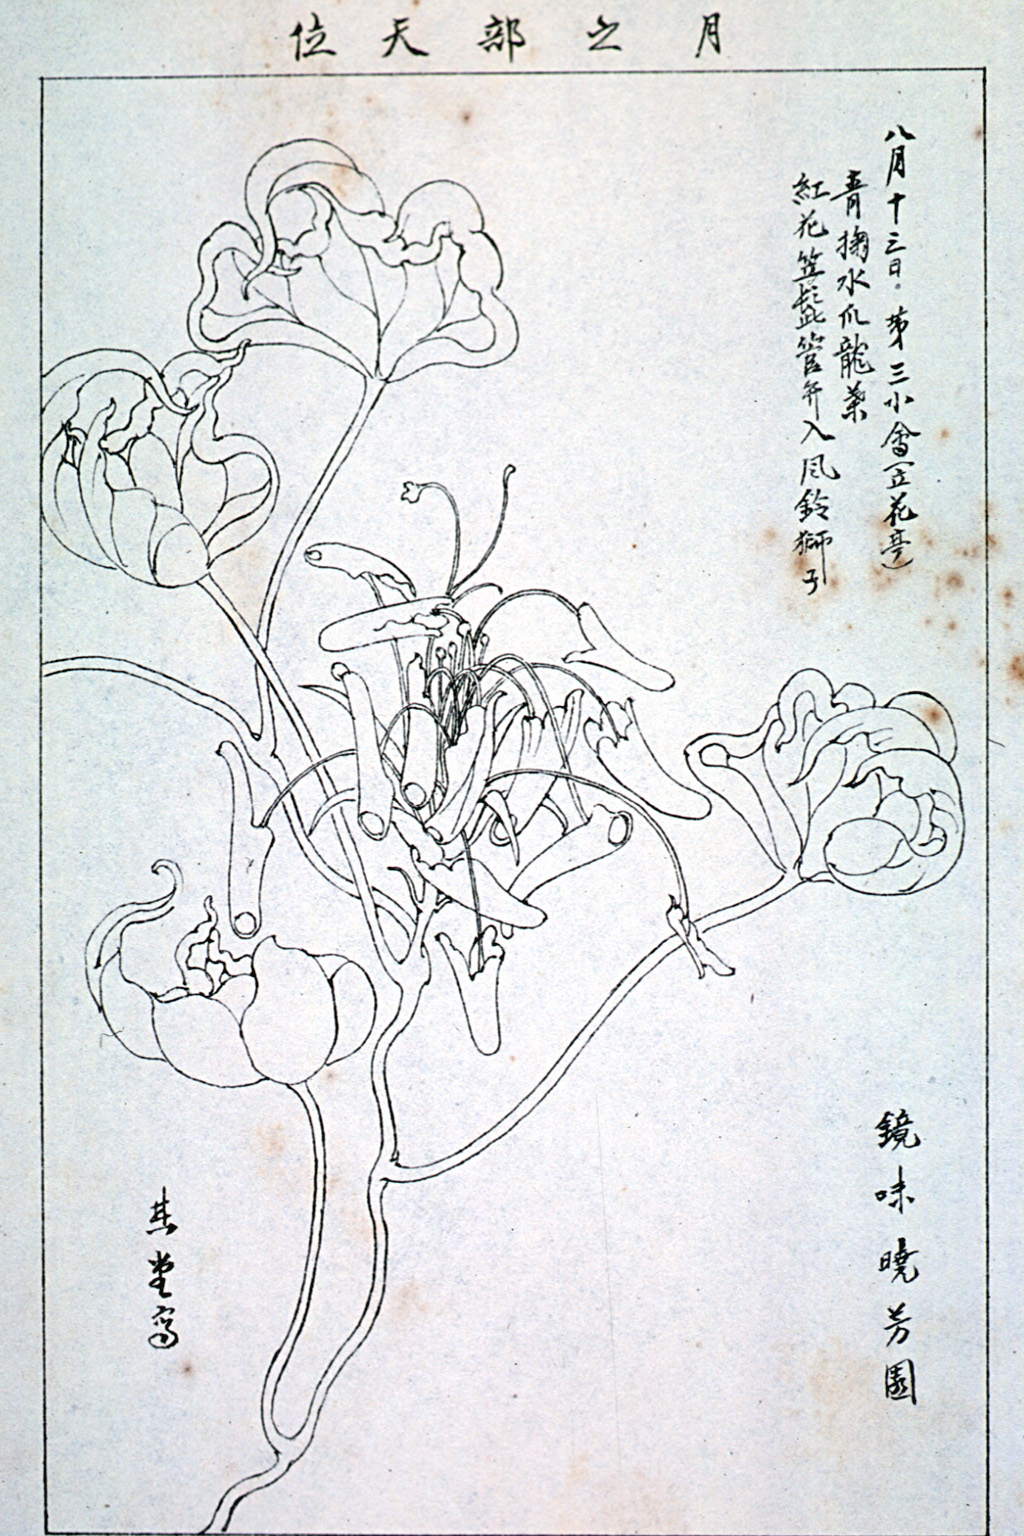 月之部天位
八月十三日。第三小會(立花亭)
青掬水爪龍葉
紅花笠髭管弁入風鈴獅子
鏡味曉芳園
其堂寫